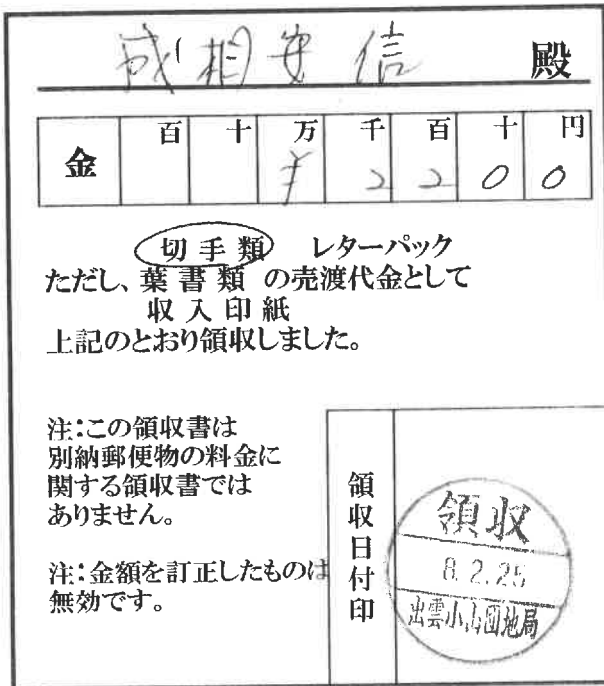 成相安信 殿
金 百 十 万 千 百 十 円
¥ 2 2 0 0
切手類 レターパック
ただし、葉書類 の売渡代金として
収入印紙
上記のとおり領収しました。
注:この領収書は
別納郵便物の料金に
関する領収書では
ありません。
注:金額を訂正したものは
無効です。
領収日付印
領収
8.2.25
出雲小山団地局